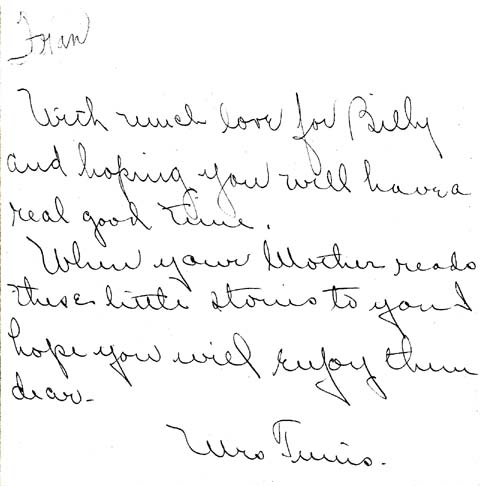 With much love for Billy
and hoping you will have a
real good time.
When your Mother reads
these little stories to you I
hope you will enjoy them
dear-
Mrs